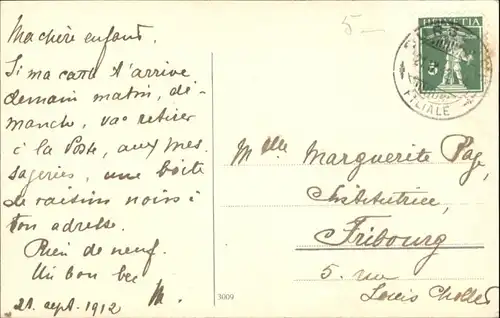 5 —
HELVETIA
5
FILIALE
Ma chère enfant.
Si ma carte t'arrive
demain matin, di-
manche, va retirer
à la Poste, aux mes
sageries, une boîte
de raisins noirs à
ton adresse.
Rien de neuf.
Un bon bec
M.
21. sept. 1912
Mlle Marguerite Page,
Institutrice,
Fribourg
5. rue
Louis Chollet
3009